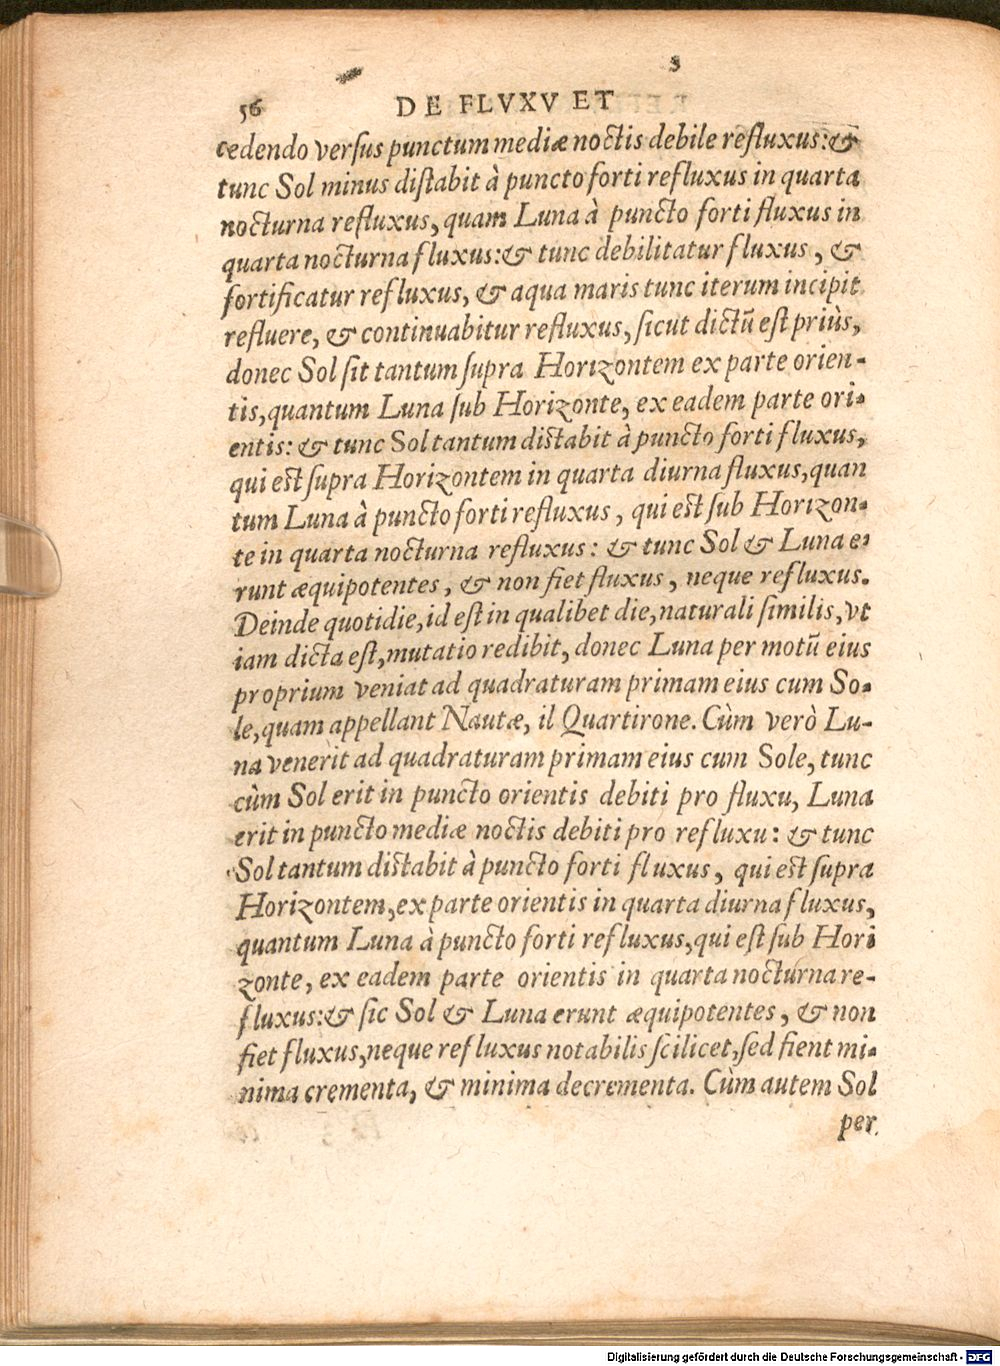 56 DE FLVXV ET
cedendo versus punctum mediæ noctis debile refluxus: &
tunc Sol minus distabit à puncto forti refluxus in quarta
nocturna refluxus, quam Luna à puncto forti fluxus in
quarta nocturna fluxus: & tunc debilitatur fluxus, &
fortificatur refluxus, & aqua maris tunc iterum incipit
refluere, & continuabitur refluxus, sicut dictũ est priùs,
donec Sol sit tantum supra Horizontem ex parte orien-
tis, quantum Luna sub Horizonte, ex eadem parte ori-
entis: & tunc Sol tantum distabit à puncto forti fluxus,
qui est supra Horizontem in quarta diurna fluxus, quan
tum Luna à puncto forti refluxus, qui est sub Horizon-
te in quarta nocturna refluxus: & tunc Sol & Luna e-
runt æquipotentes, & non fiet fluxus, neque refluxus.
Deinde quotidie, id est in qualibet die, naturali similis, vt
iam dicta est, mutatio redibit, donec Luna per motũ eius
proprium veniat ad quadraturam primam eius cum So-
le, quam appellant Nautæ, il Quartirone. Cùm verò Lu-
na venerit ad quadraturam primam eius cum Sole, tunc
cùm Sol erit in puncto orientis debiti pro fluxu, Luna
erit in puncto mediæ noctis debiti pro refluxu: & tunc
Sol tantum distabit à puncto forti fluxus, qui est supra
Horizontem, ex parte orientis in quarta diurna fluxus,
quantum Luna à puncto forti refluxus, qui est sub Hori
zonte, ex eadem parte orientis in quarta nocturna re-
fluxus: & sic Sol & Luna erunt æquipotentes, & non
fiet fluxus, neque refluxus notabilis scilicet, sed fient mi-
nima crementa, & minima decrementa. Cùm autem Sol
per
Digitalisierung gefördert durch die Deutsche Forschungsgemeinschaft - DFG